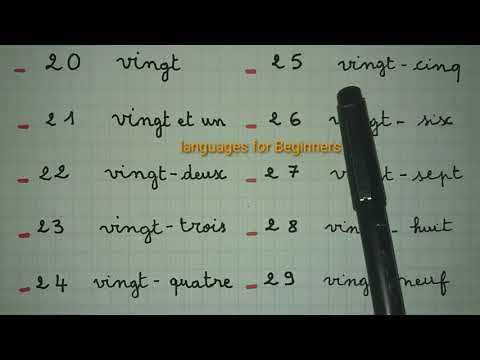 - 20 vingt
- 21 vingt et un
- 22 vingt-deux
- 23 vingt-trois
- 24 vingt-quatre
- 25 vingt-cinq
- 26 - six
languages for Beginners
- 27 - sept
- 28 - huit
- 29 neuf